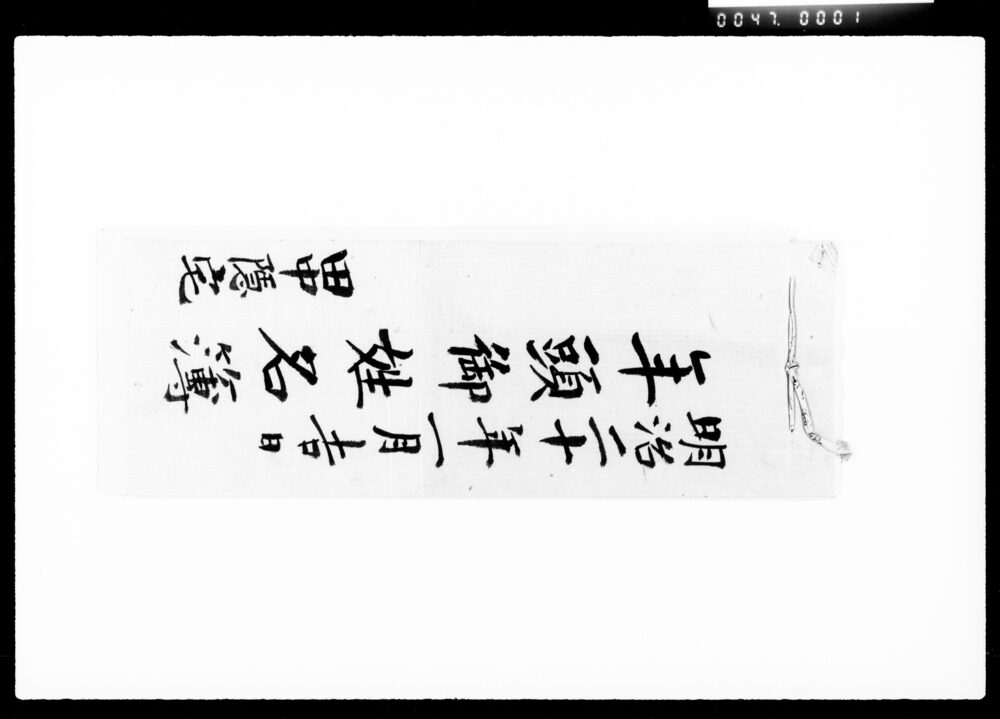 0047. 0001
明治二十年一月吉日
年頭御姓名簿
田中隠宅